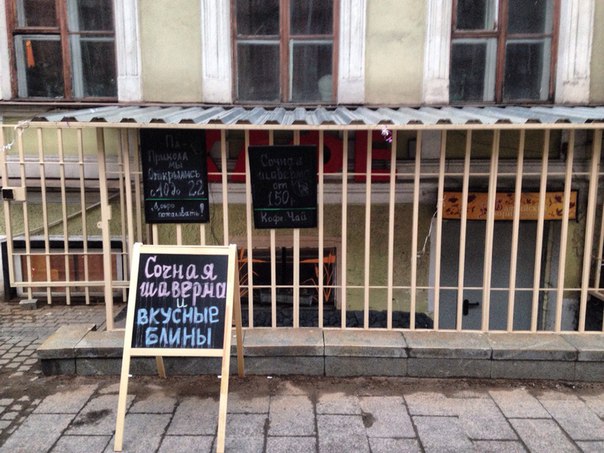 Мы
Открылись
с 10 до 22
Добро
пожаловать!
Сочная
шаверма
от
150р
Кофе. Чай
КАФЕ
Сочная
шаверма
и
вкусные
блины